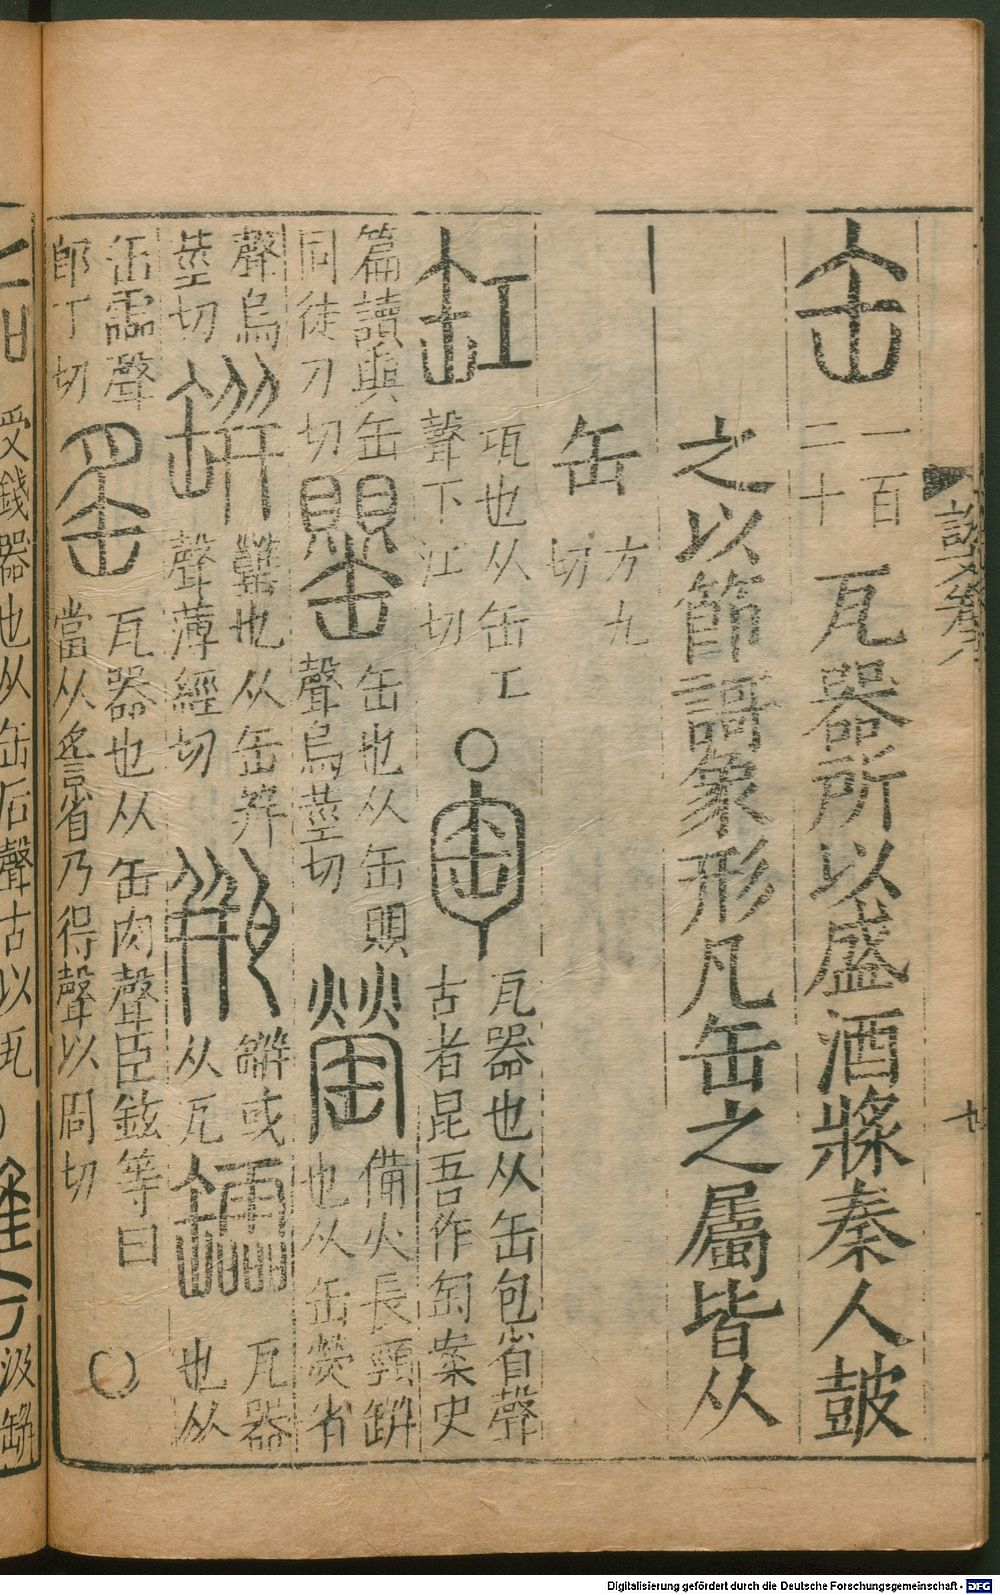 缶 一百二十 瓦器所以盛酒漿秦人鼓
之以節謌象形凡缶之屬皆从
缶 方九切
缸 瓨也从缶工聲下江切 〇 匋 瓦器也从缶包省聲古者昆吾作匋案史
篇讀與缶同徒刀切 罌 缶也从缶賏聲烏莖切 罃 備火長頸缾也从缶熒省
聲烏莖切 缾 䍃也从缶幷聲薄經切 瓶 缾或从瓦 瓦器也从
缶霝聲郎丁切 䍃 瓦器也从缶肉聲臣鉉等曰當从䚻省乃得聲以周切 〇
受錢器也从缶后聲古以瓦
汲缾
Digitalisierung gefördert durch die Deutsche Forschungsgemeinschaft - DFG